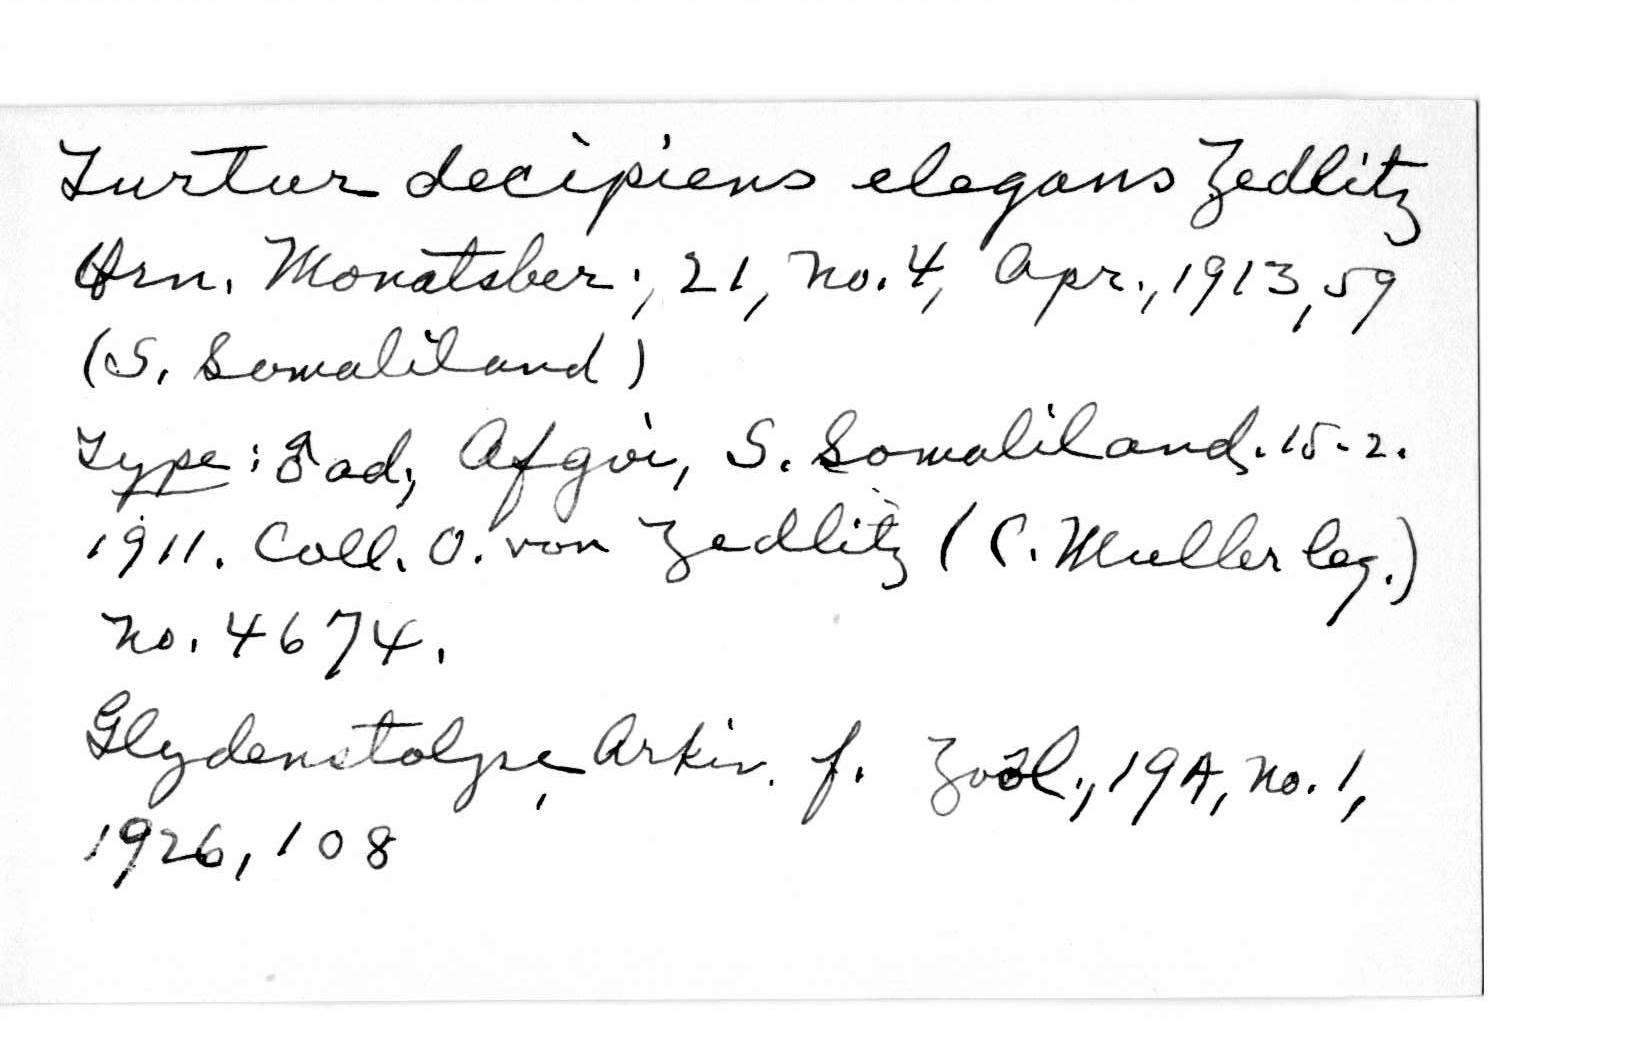 Turtur decipiens elegans Zedlitz
Orn. Monatsber., 21, no. 4, Apr., 1913, 59
(S. Somaliland)
Type: ♂ ad., Afgoi, S. Somaliland. 15-2.
1911. Coll. O. von Zedlitz (C. Muller leg.)
no. 4674.
Glydenstolpe, Arkiv. f. Zool., 19A, no. 1,
1926, 108